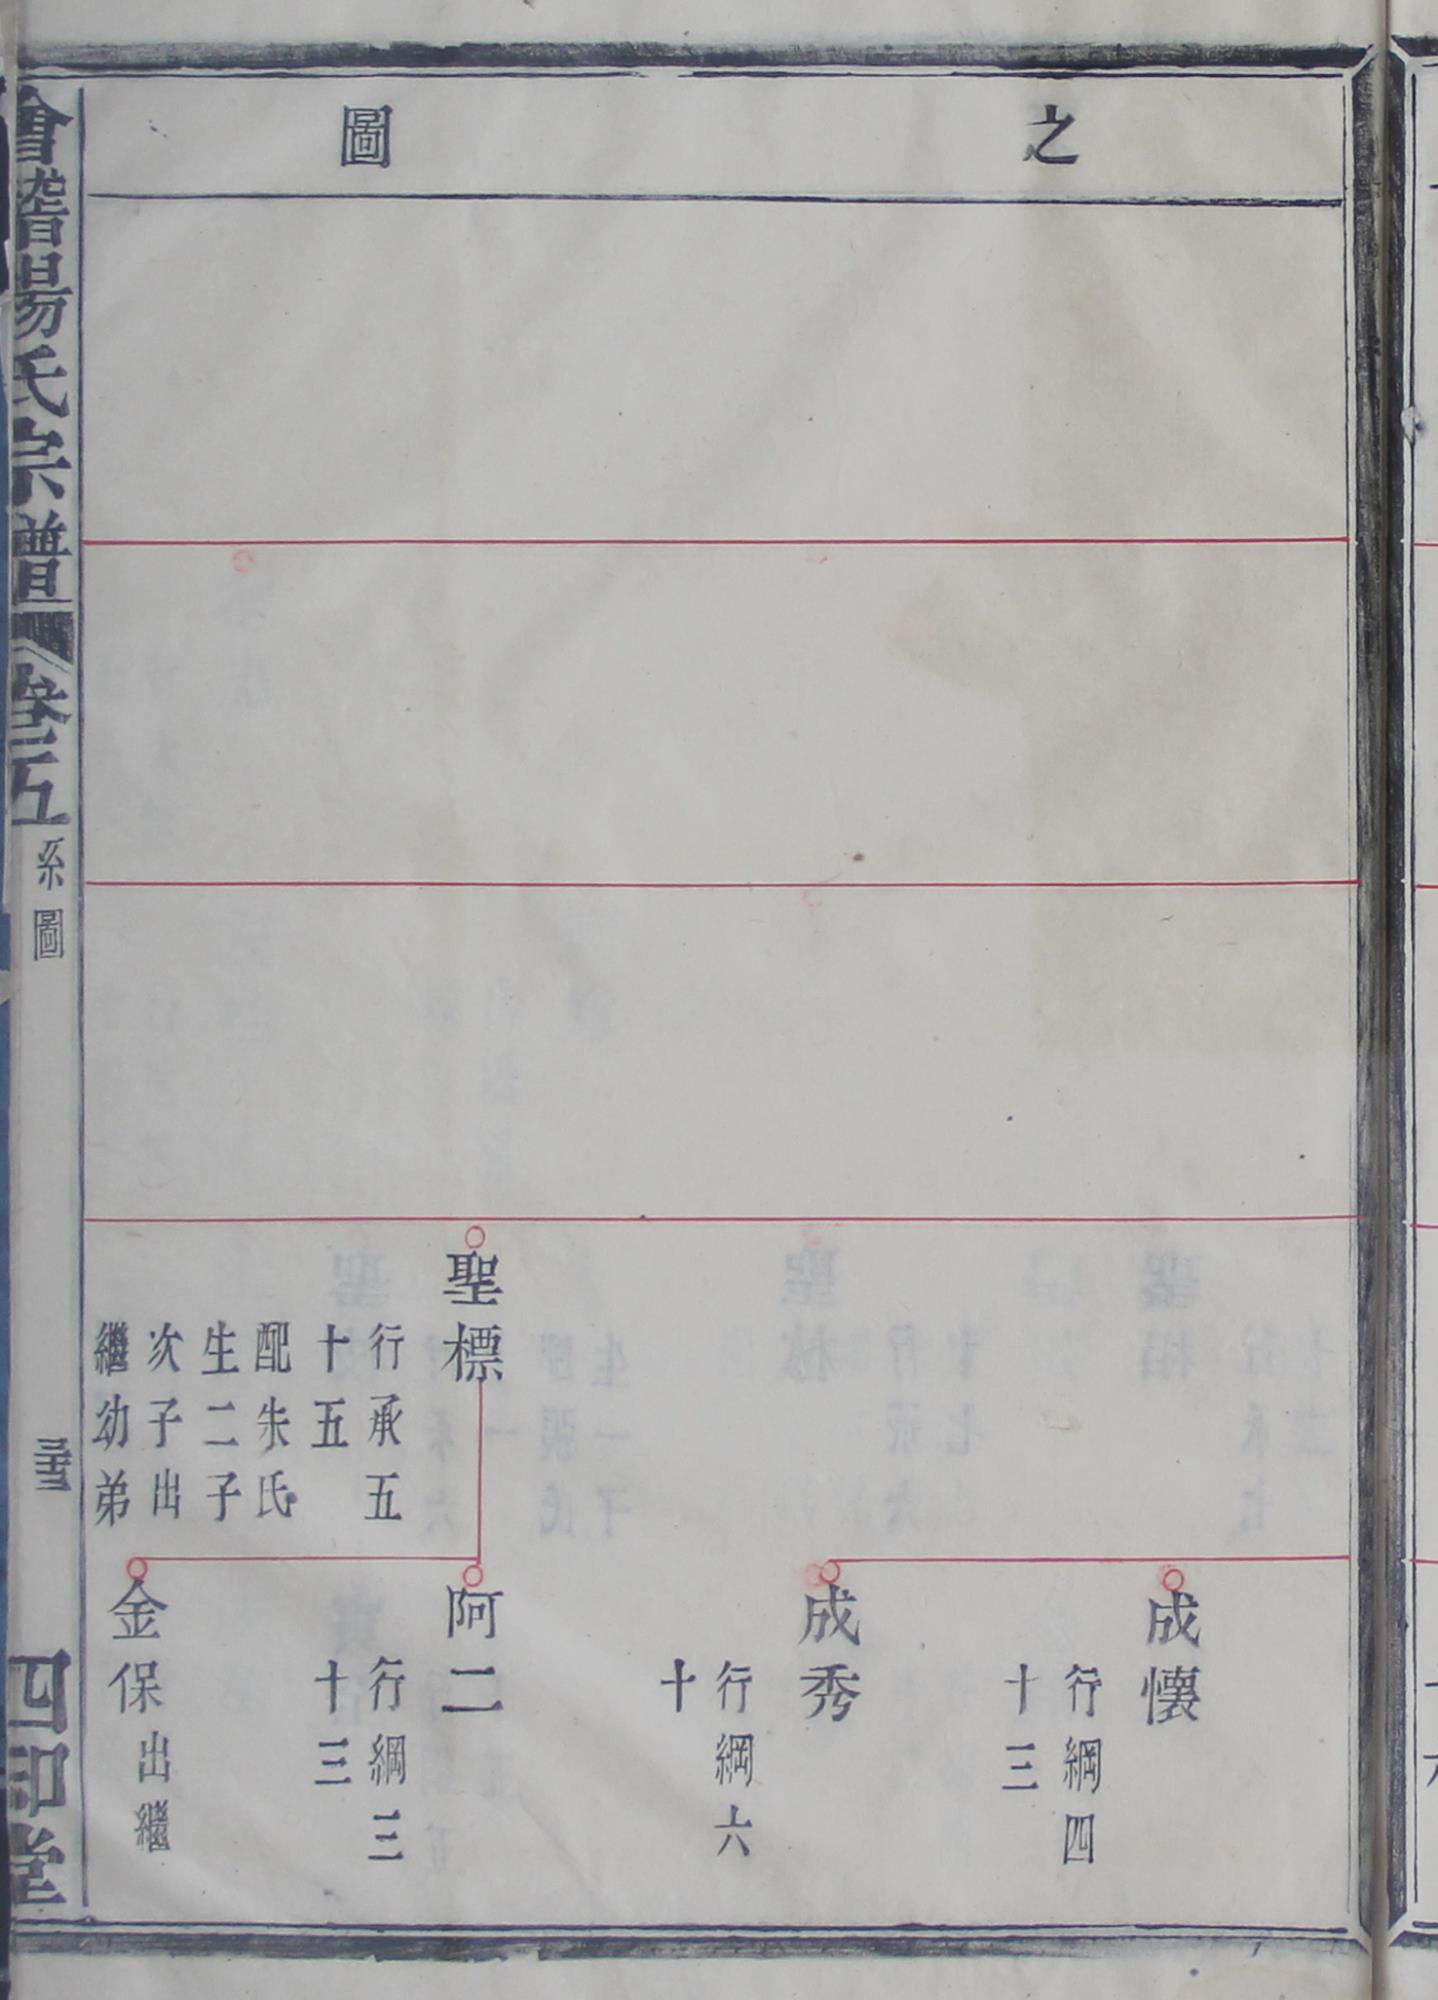 之圖
成懷
行綱四
十三
成秀
行綱六
十
聖標
行承五
十五
配朱氏
生二子
次子出
繼幼弟
阿二
行綱三
十三
金保出繼
會稽昜氏宗譜
卷五
系圖
四印堂